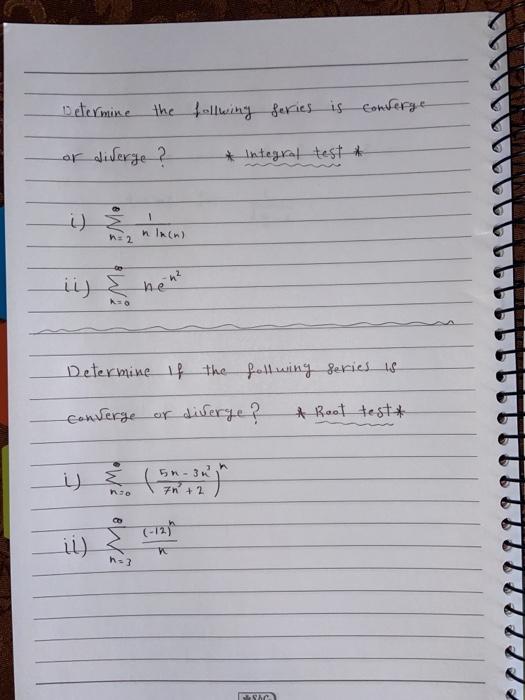 Determine the follwing series is converge
or diverge? * Integral test *
i) ∞∑n=2 1/(n ln(n))
ii) ∞∑n=0 ne^-n²
Determine If the follwing series is
converge or diverge? * Root test *
i) ∞∑n=0 ((5n - 3n³)/(7n³ + 2))^n
ii) ∞∑n=3 (-12)^n/n